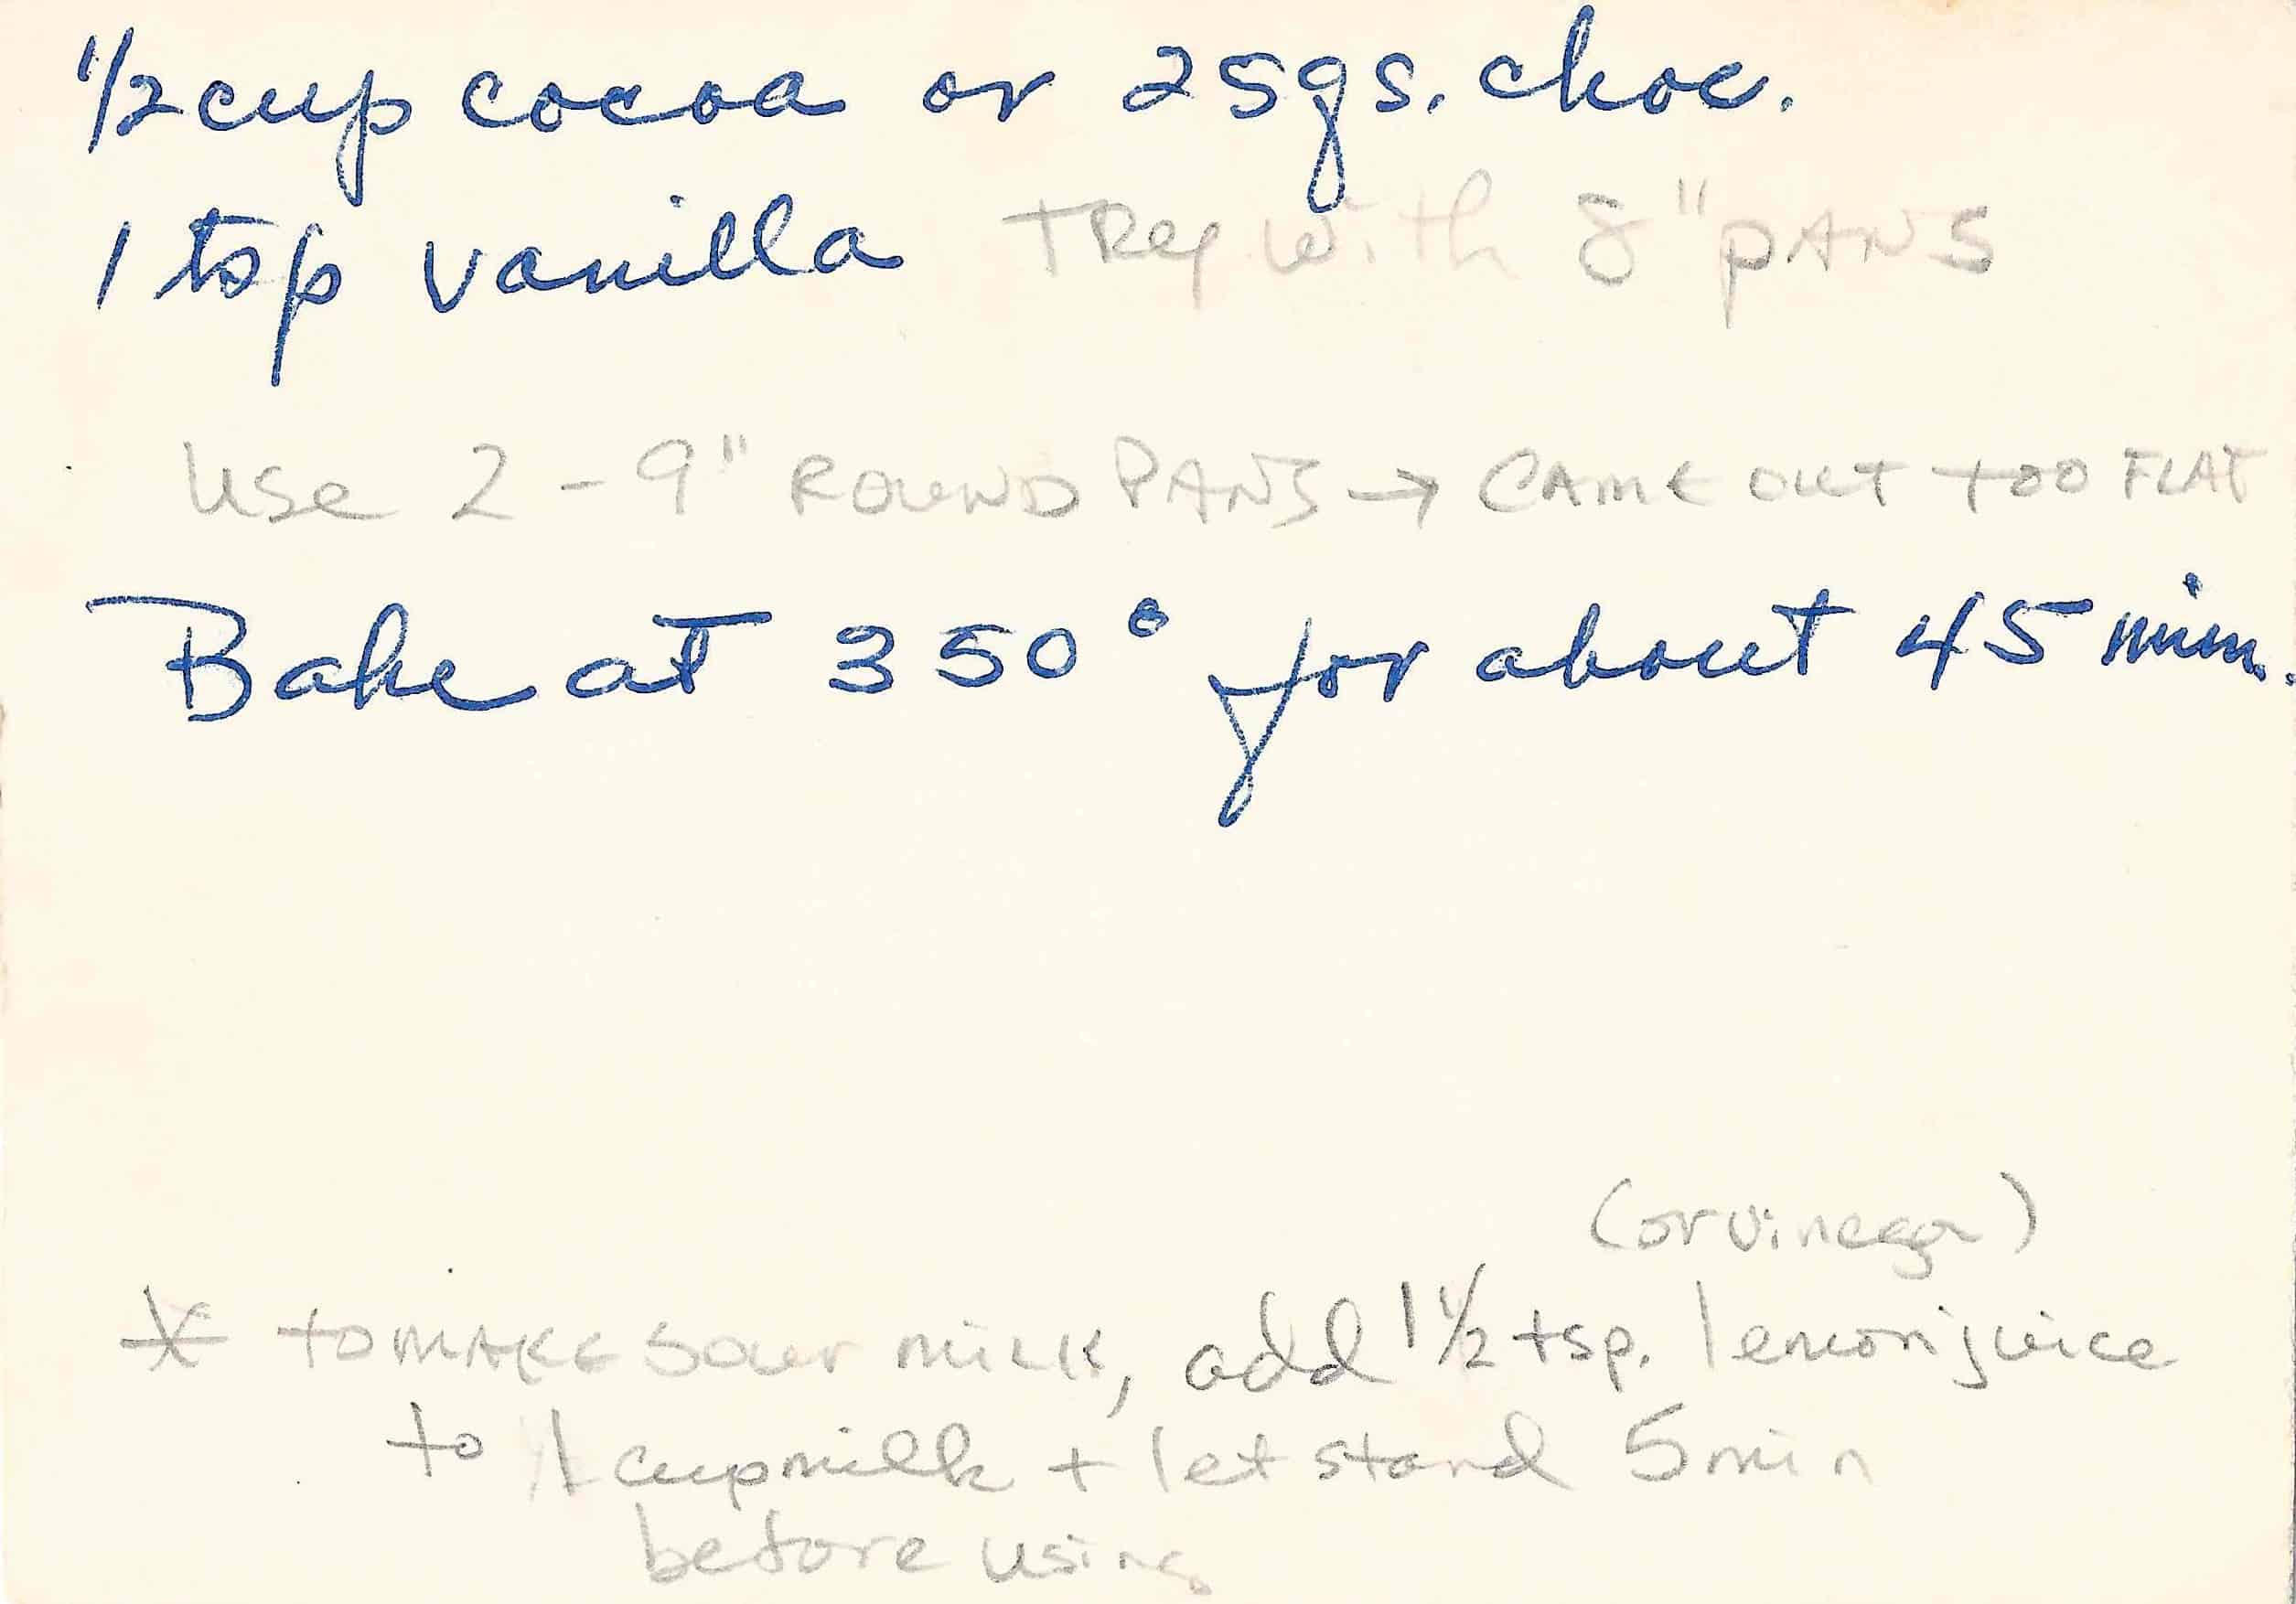 1/2 cup cocoa or 2 sqs. choc.
1 tsp vanilla TRy with 8" pANS
Use 2 - 9" ROUND PANS → CAME OUT TOO FLAT
Bake at 350° for about 45 min.
(or vinegar)
* to MAKE sour MILK, add 1 1/2 tsp. lemon juice
to 1 cup milk + let stand 5 min
before using